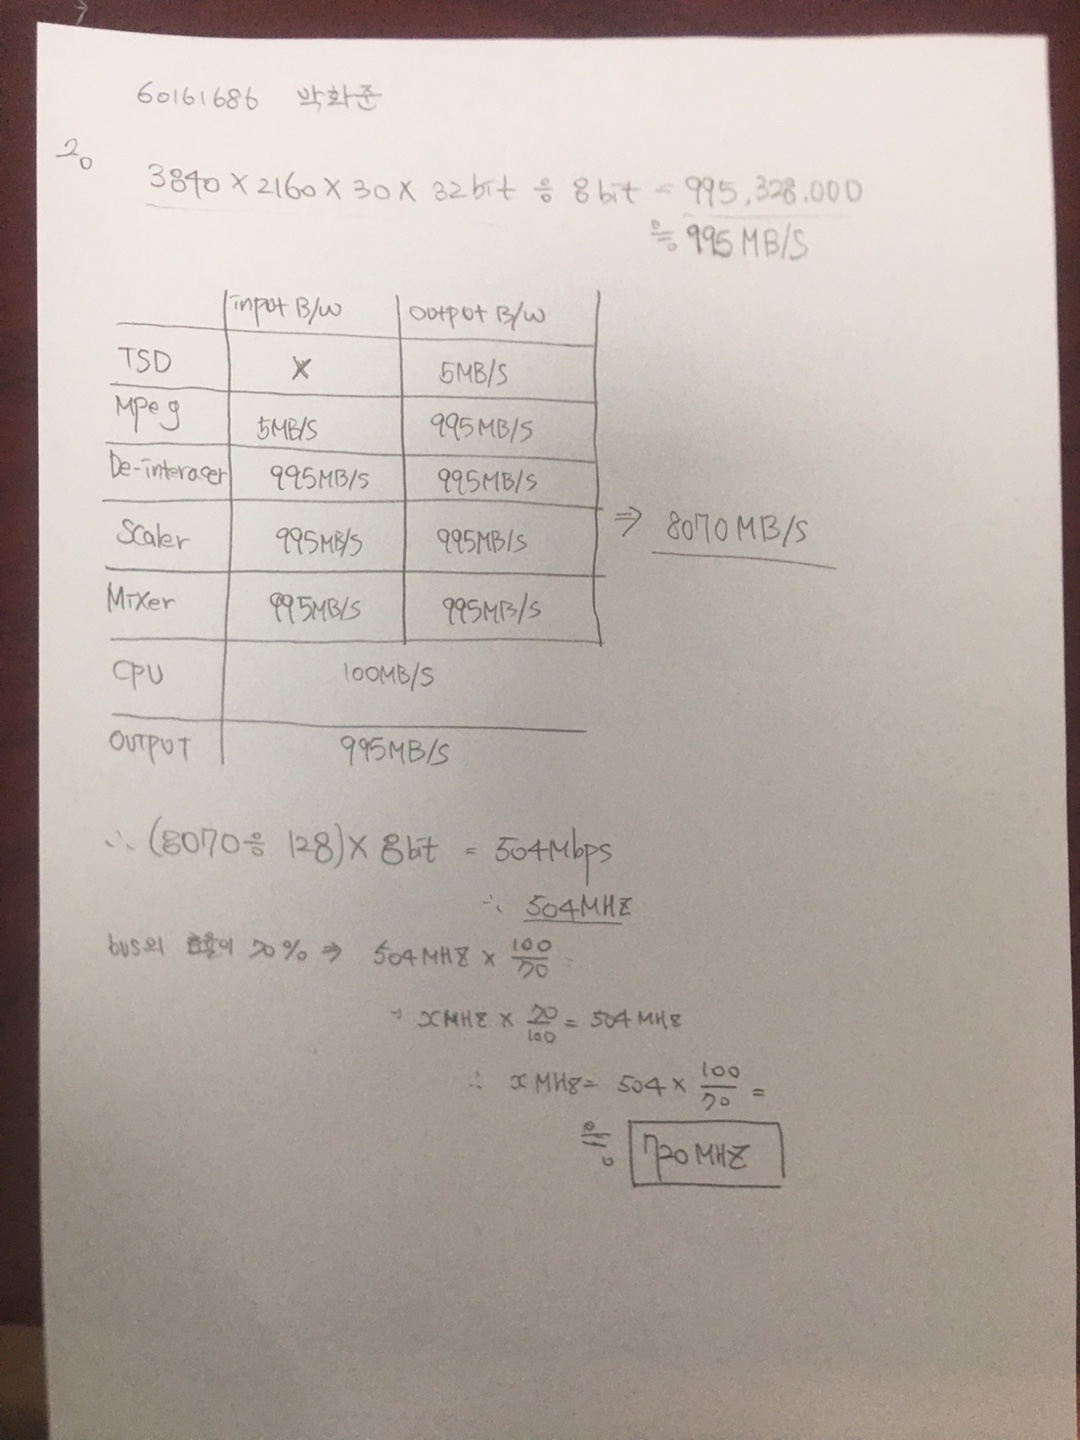 60161686 박화준
2.
3840 X 2160 X 30 X 32bit ÷ 8bit = 995,328,000
≒ 995 MB/S
input B/W output B/W
TSD X 5MB/S
MPeg 5MB/S 995MB/S
De-interacer 995MB/S 995MB/S
Scaler 995MB/S 995MB/S
Mixer 995MB/S 995MB/S
⇒ 8070 MB/S
CPU 100MB/S
OUTPUT 995MB/S
∴ (8070 ÷ 128) X 8bit = 504Mbps
∴ 504MHZ
bus의 효율이 70% ⇒ 504MHZ × 100/70 =
→ xMHZ × 70/100 = 504 MHZ
∴ x MHZ = 504 × 100/70 =
≒ 720 MHZ